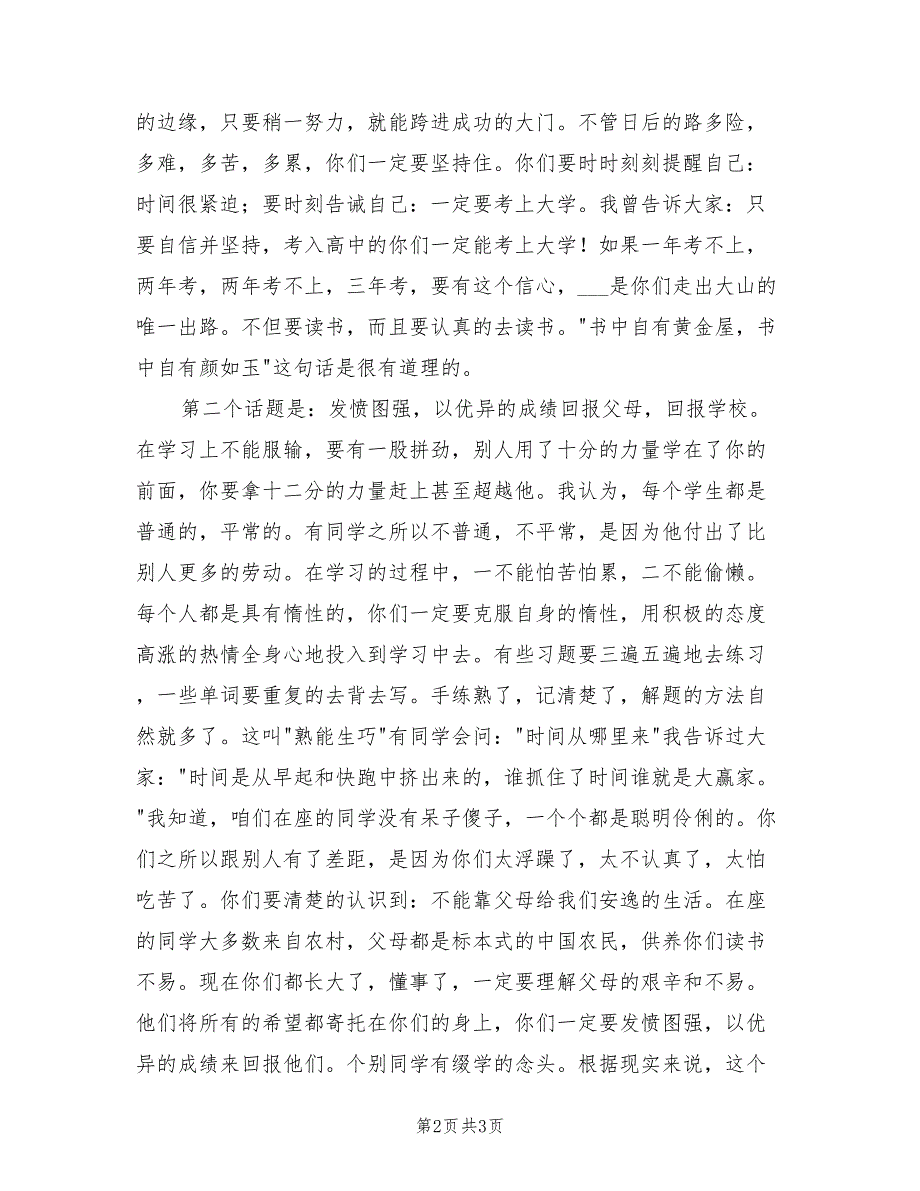 的边缘，只要稍一努力，就能跨进成功的大门。不管日后的路多险，
多难，多苦，多累，你们一定要坚持住。你们要时时刻刻提醒自己：
时间很紧迫；要时刻告诫自己：一定要考上大学。我曾告诉大家：只
要自信并坚持，考入高中的你们一定能考上大学！如果一年考不上，
两年考，两年考不上，三年考，要有这个信心，___是你们走出大山的
唯一出路。不但要读书，而且要认真的去读书。"书中自有黄金屋，书
中自有颜如玉"这句话是很有道理的。
第二个话题是：发愤图强，以优异的成绩回报父母，回报学校。
在学习上不能服输，要有一股拼劲，别人用了十分的力量学在了你的
前面，你要拿十二分的力量赶上甚至超越他。我认为，每个学生都是
普通的，平常的。有同学之所以不普通，不平常，是因为他付出了比
别人更多的劳动。在学习的过程中，一不能怕苦怕累，二不能偷懒。
每个人都是具有惰性的，你们一定要克服自身的惰性，用积极的态度
高涨的热情全身心地投入到学习中去。有些习题要三遍五遍地去练习
，一些单词要重复的去背去写。手练熟了，记清楚了，解题的方法自
然就多了。这叫"熟能生巧"有同学会问："时间从哪里来"我告诉过大
家："时间是从早起和快跑中挤出来的，谁抓住了时间谁就是大赢家。
"我知道，咱们在座的同学没有呆子傻子，一个个都是聪明伶俐的。你
们之所以跟别人有了差距，是因为你们太浮躁了，太不认真了，太怕
吃苦了。你们要清楚的认识到：不能靠父母给我们安逸的生活。在座
的同学大多数来自农村，父母都是标本式的中国农民，供养你们读书
不易。现在你们都长大了，懂事了，一定要理解父母的艰辛和不易。
他们将所有的希望都寄托在你们的身上，你们一定要发愤图强，以优
异的成绩来回报他们。个别同学有缀学的念头。根据现实来说，这个
第2页共3页